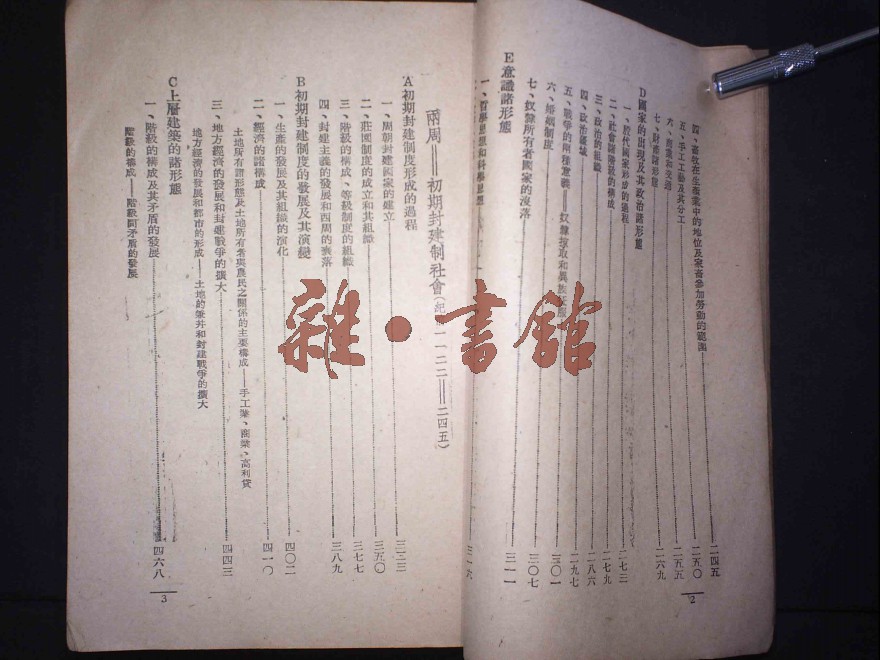 四、畜牧在生產業中的地位及家畜參加勞動的範圍 二四五
五、手工工藝及其分工 二五〇
六、商業和交通 二五五
七、財產諸形態 二六九
D 國家的出現及其政治諸形態
一、殷代國家形成的過程 二七三
二、社會諸階級的構成 二七九
三、政治的組織 二八六
四、政治疆域 二九七
五、戰爭的兩種意義——奴隸
六、婚姻制度 三〇一
七、奴隸所有者國家的沒落 三〇七
E 意識諸形態 三一一
一、哲學思想和科學思想 三一六
2
兩周——初期封建制社會(紀 一一二二——二四五)
A 初期封建制度形成的過程
一、周朝封建國家的建立 三三三
二、莊園制度的成立和其組織 三五〇
三、階級的構成、等級制度的組織 三七七
四、封建主義的發展和西周的衰落 三八九
B 初期封建制度的發展及其演變
一、生產的發展及其組織的演化 四〇二
二、經濟的諸構成 四一〇
土地所有諸形態及土地所有者與農民之關係的主要構成——手工業、商業、高利貸
三、地方經濟的發展和封建戰爭的擴大 四四三
地方經濟的發展和都市的形成——土地的兼并和封建戰爭的擴大
C 上層建築的諸形態
一、階級的構成及其矛盾的發展 四六八
階級的構成——階級間矛盾的發展
3
雜·書館